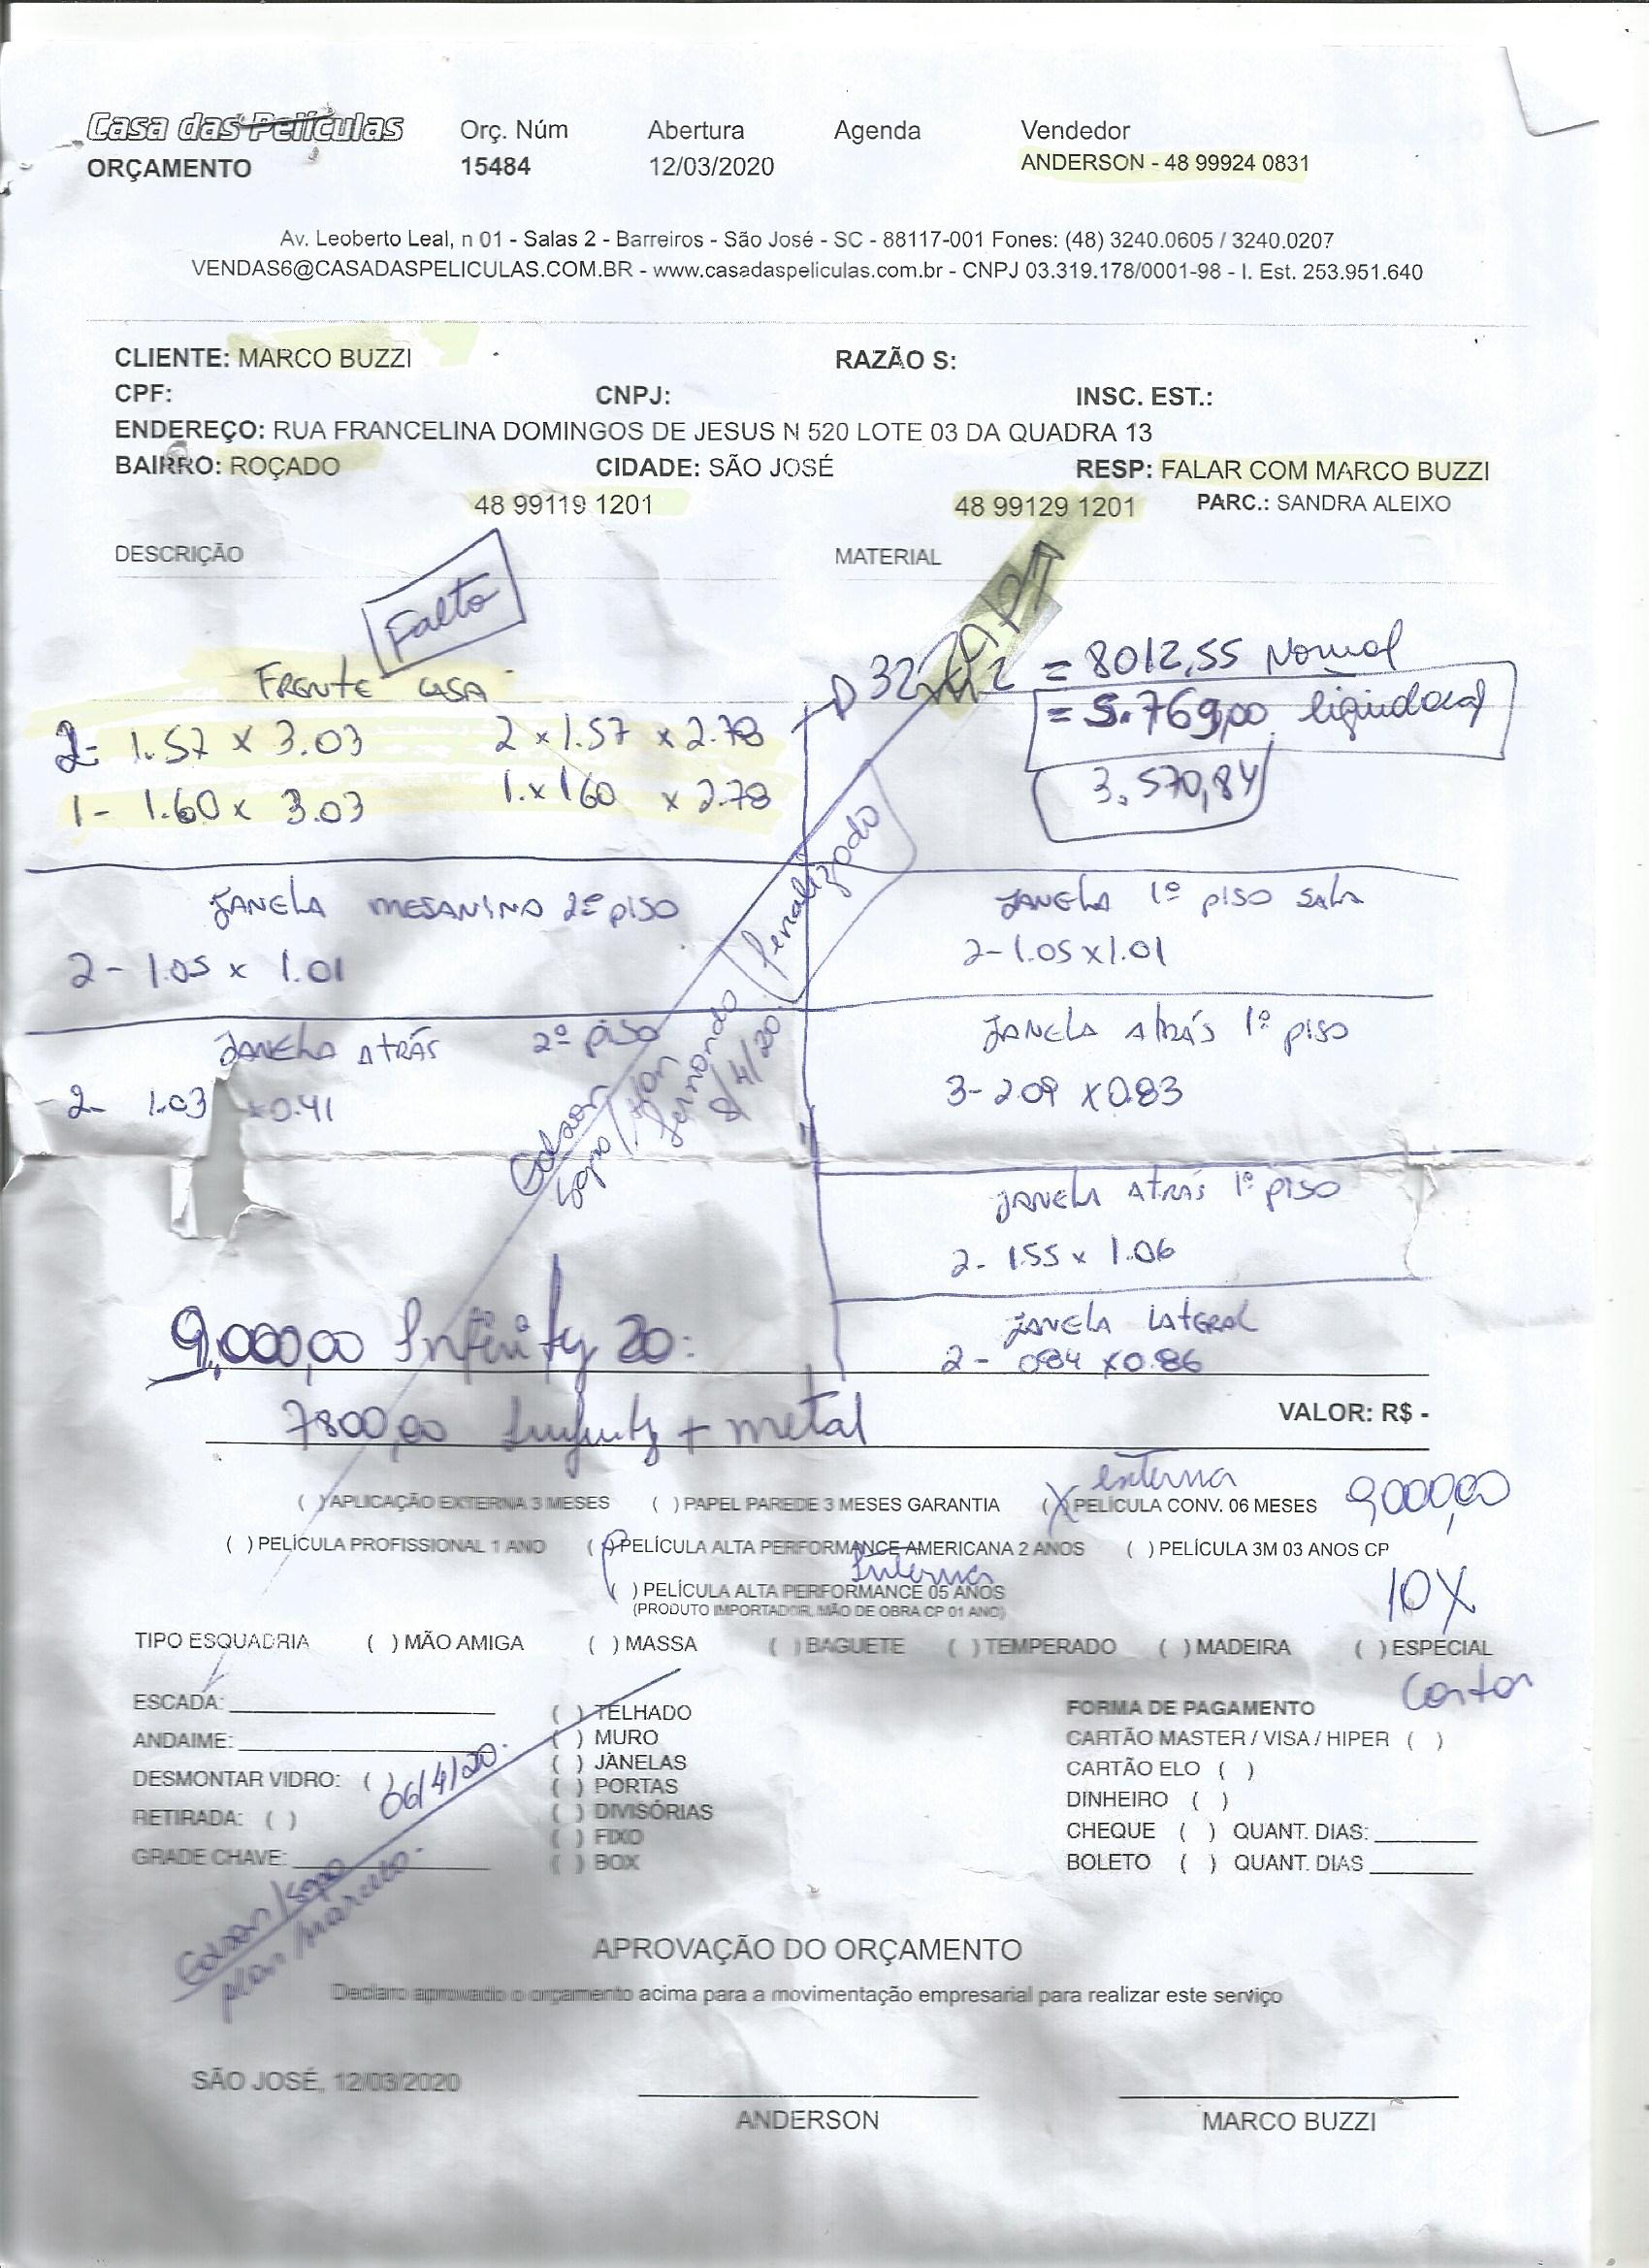 Casa das Películas Orç. Núm Abertura Agenda Vendedor
ORÇAMENTO 15484 12/03/2020 ANDERSON - 48 99924 0831
Av. Leoberto Leal, n 01 - Salas 2 - Barreiros - São José - SC - 88117-001 Fones: (48) 3240.0605 / 3240.0207
VENDAS6@CASADASPELICULAS.COM.BR - www.casadaspeliculas.com.br - CNPJ 03.319.178/0001-98 - I. Est. 253.951.640
CLIENTE: MARCO BUZZI RAZÃO S:
CPF: CNPJ: INSC. EST.:
ENDEREÇO: RUA FRANCELINA DOMINGOS DE JESUS N 520 LOTE 03 DA QUADRA 13
BAIRRO: ROÇADO CIDADE: SÃO JOSÉ RESP: FALAR COM MARCO BUZZI
48 99119 1201 48 99129 1201 PARC.: SANDRA ALEIXO
DESCRIÇÃO MATERIAL
Falto
FRENTE CASA
32 = 8012,55 Normal
= 5.769,00 liquidocal
3.570,84
2- 1.57 x 3.03 2 x 1.57 x 2.78
1- 1.60 x 3.03 1. x 160 x 2.78
Penalizado
JANELA MESANINO 2º PISO JANELA 1º PISO SALA
2- 1.05 x 1.01 2- 1.05 x 1.01
JANELA ATRÁS 2º PISO JANELA ATRÁS 1º PISO
2- 1.03 x 0.41 3- 2.09 x 0.83
fernando
8/4/20
JANELA ATRÁS 1º PISO
2- 1.55 x 1.06
JANELA LATERAL
2- 084 x 0.86
9.000,00 Infinity 20:
7800,00 Infinity + metal
VALOR: R$ -
externa
( ) APLICAÇÃO EXTERNA 3 MESES ( ) PAPEL PAREDE 3 MESES GARANTIA (X) PELÍCULA CONV. 06 MESES 9000,00
( ) PELÍCULA PROFISSIONAL 1 ANO ( ) PELÍCULA ALTA PERFORMANCE AMERICANA 2 ANOS ( ) PELÍCULA 3M 03 ANOS CP
Interna
( ) PELÍCULA ALTA PERFORMANCE 05 ANOS
(PRODUTO IMPORTADOR, MÃO DE OBRA CP 01 ANO)
10X
TIPO ESQUADRIA ( ) MÃO AMIGA ( ) MASSA ( ) BAGUETE ( ) TEMPERADO ( ) MADEIRA ( ) ESPECIAL
ESCADA: ( ) TELHADO FORMA DE PAGAMENTO
ANDAIME: ( ) MURO CARTÃO MASTER / VISA / HIPER ( )
DESMONTAR VIDRO: ( ) ( ) JANELAS CARTÃO ELO ( )
06/4/20
( ) PORTAS DINHEIRO ( )
RETIRADA: ( ) ( ) DIVISÓRIAS CHEQUE ( ) QUANT. DIAS:
( ) FIXO
GRADE CHAVE: ( ) BOX BOLETO ( ) QUANT. DIAS
APROVAÇÃO DO ORÇAMENTO
Declaro aprovado o orçamento acima para a movimentação empresarial para realizar este serviço
SÃO JOSÉ, 12/03/2020
ANDERSON MARCO BUZZI